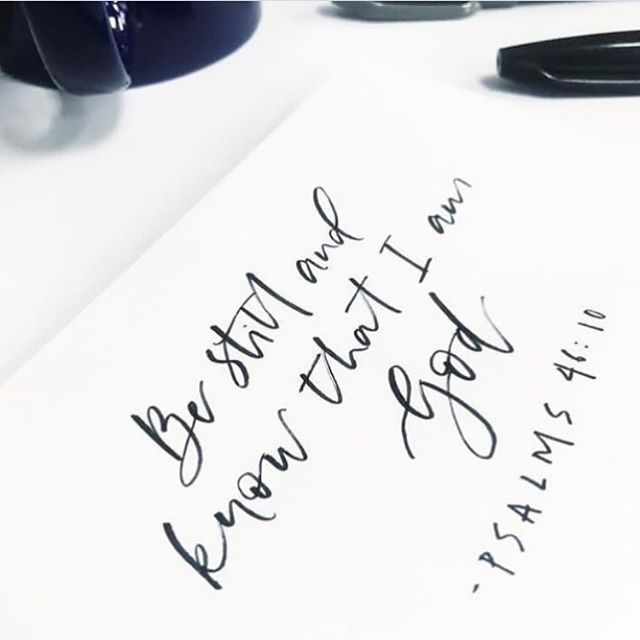 Be still and
know that I am
God
- PSALMS 46:10